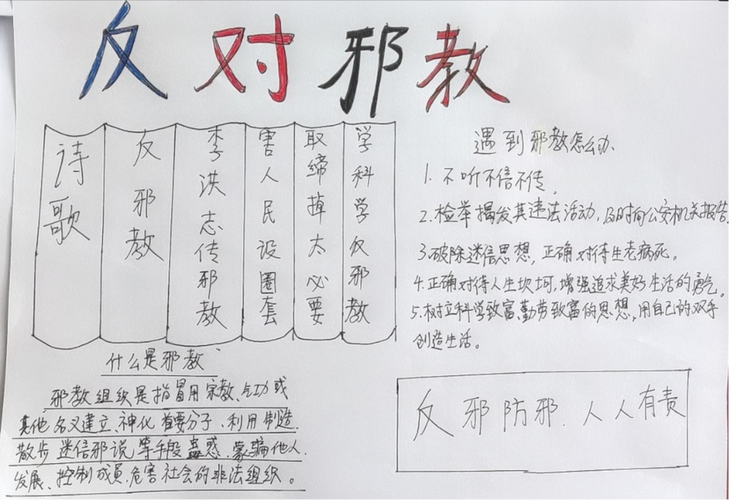 反对邪教
诗歌
反邪教
李洪志传邪教
害人民设圈套
取缔掉太必要
学科学反邪教
遇到邪教怎么办
1. 不听不信不传。
2. 检举揭发其违法活动，及时向公安机关报告。
3. 破除迷信思想，正确对待生老病死。
4. 正确对待人生坎坷，增强追求美好生活的勇气。
5. 树立科学致富、勤劳致富的思想，用自己的双手
创造生活。
什么是邪教
邪教组织是指冒用宗教、气功或
其他名义建立、神化首要分子，利用制造、
散步迷信邪说等手段蛊惑、蒙骗他人，
发展、控制成员，危害社会的非法组织。
反邪防邪．人人有责